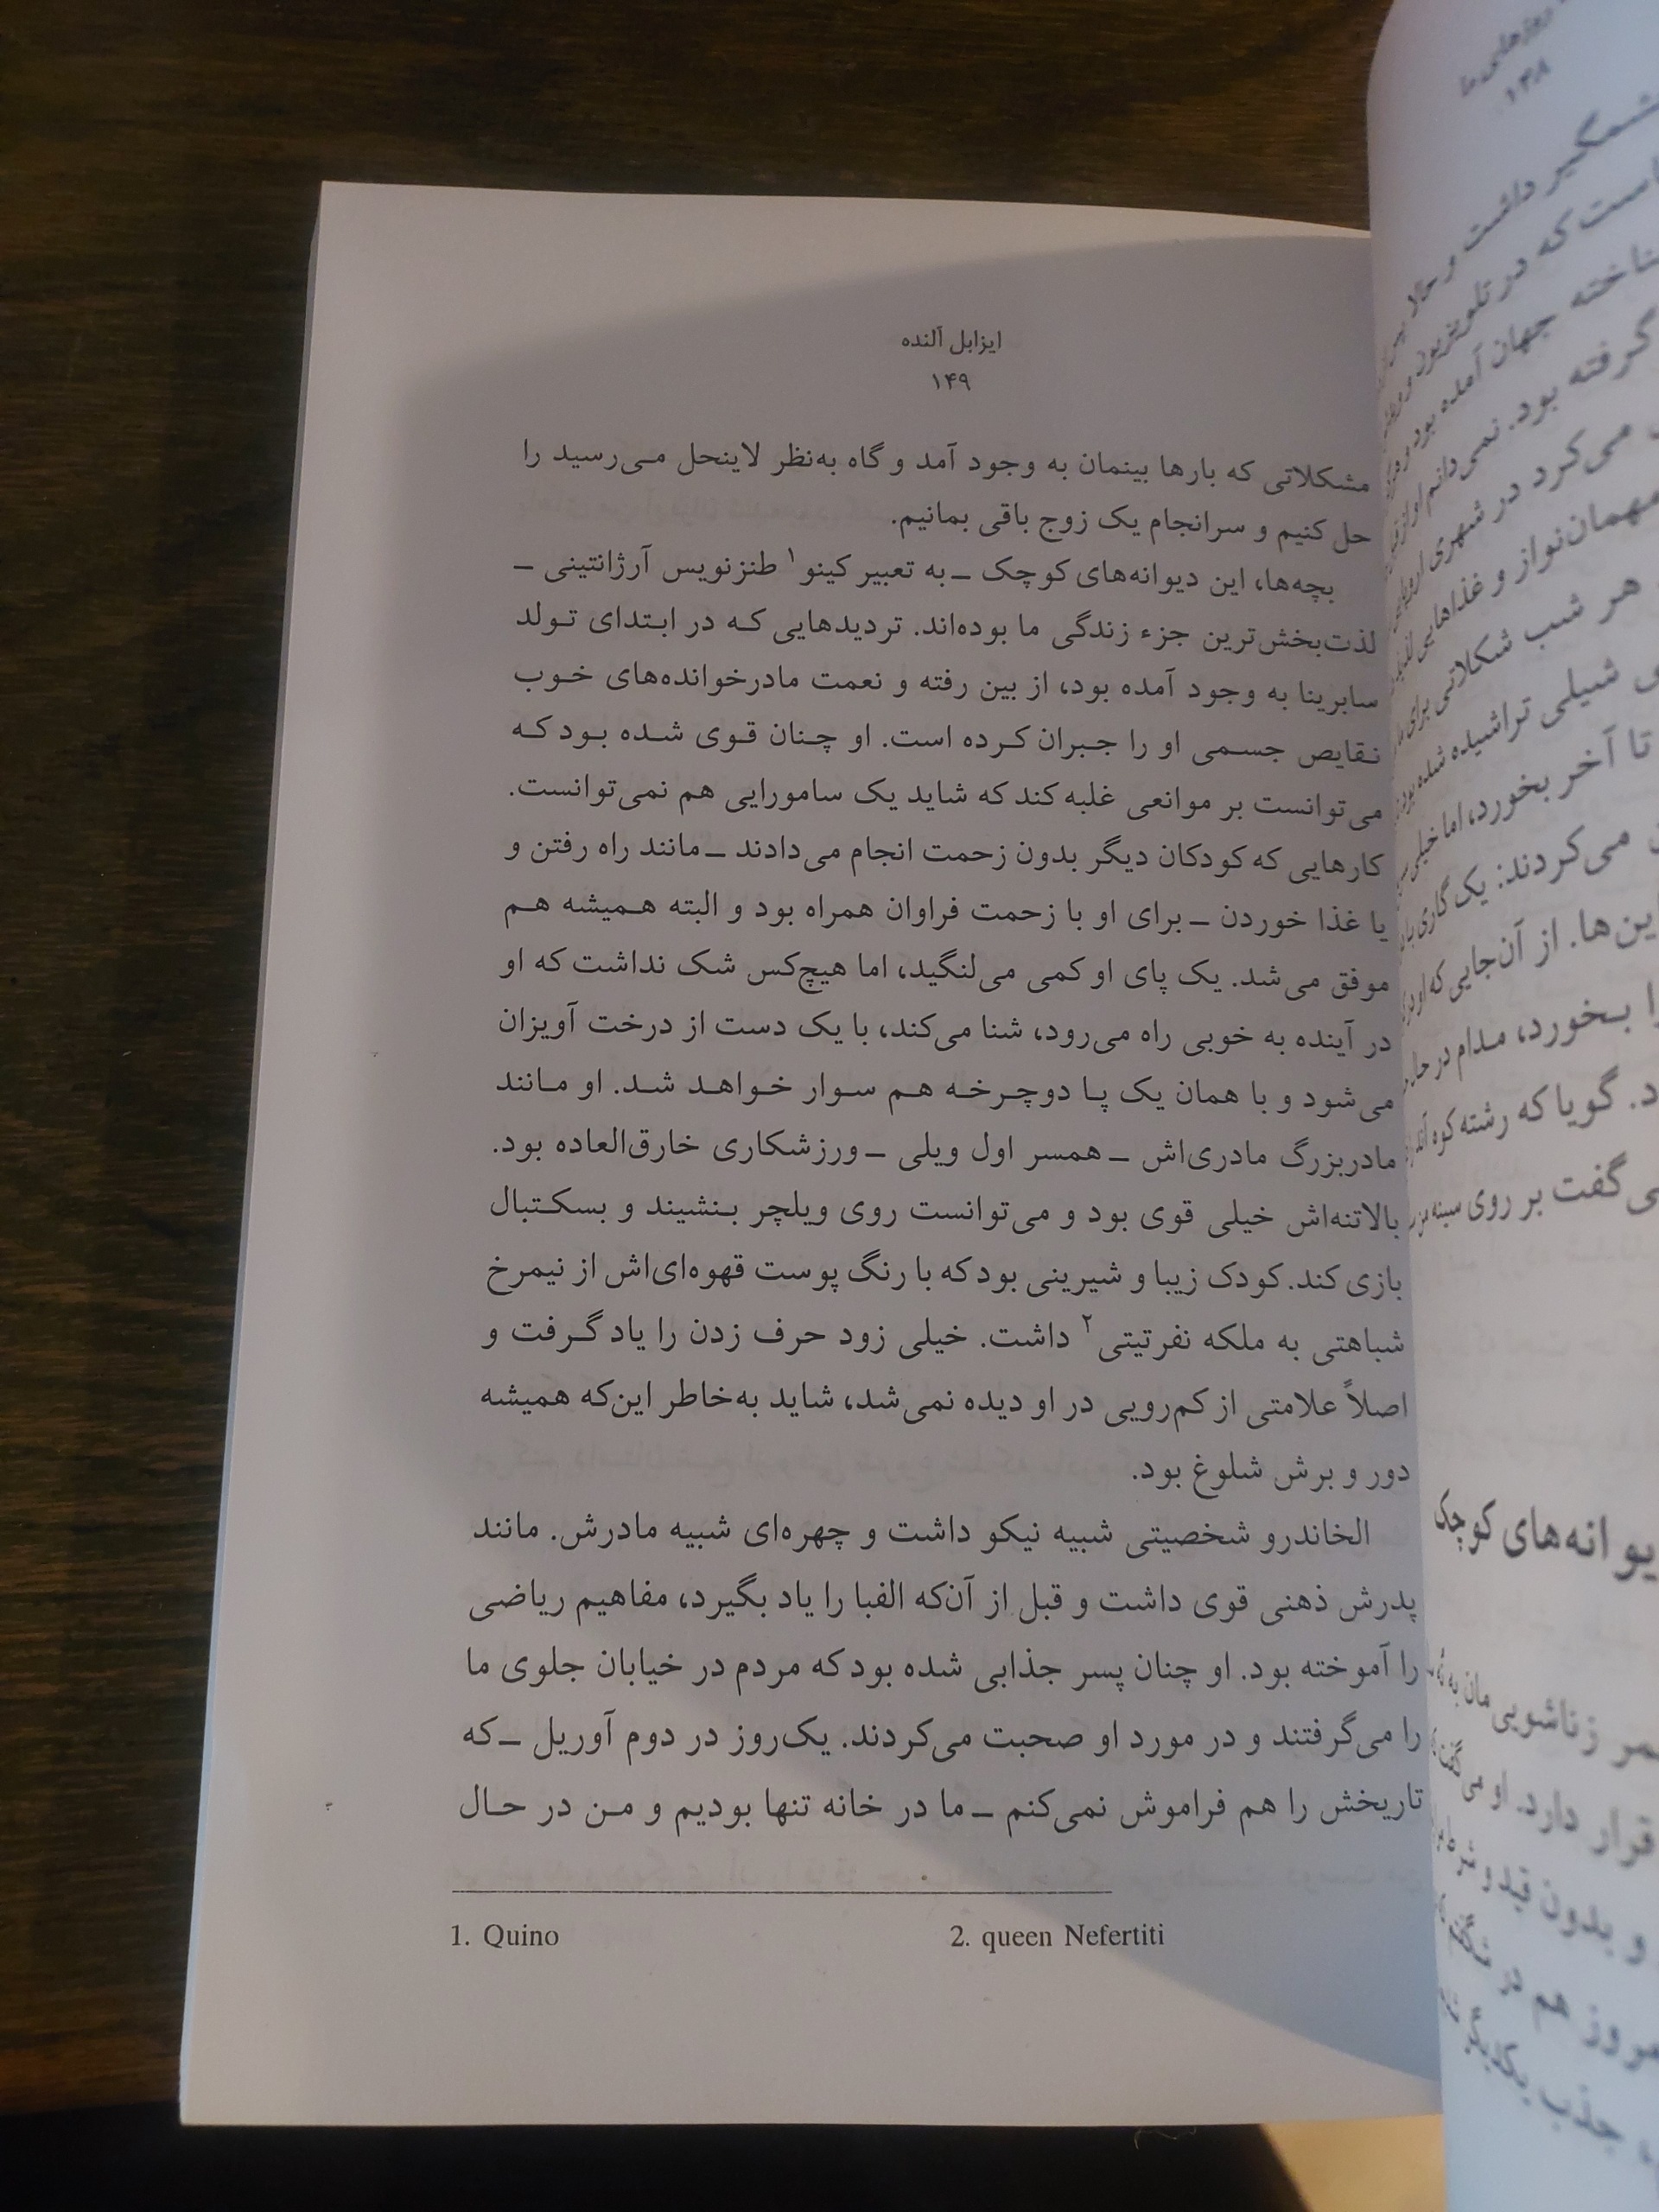 ایزابل آلنده
۱۴۹
مشکلاتی که بارها بینمان به وجود آمد و گاه به‌نظر لاینحل می‌رسید را
حل کنیم و سرانجام یک زوج باقی بمانیم.
بچه‌ها، این دیوانه‌های کوچک ـ به تعبیر کینو۱ طنزنویس آرژانتینی ـ
لذت‌بخش‌ترین جزء زندگی ما بوده‌اند. تردیدهایی که در ابتدای تولد
سابرینا به وجود آمده بود، از بین رفته و نعمت مادرخوانده‌های خوب
نقایص جسمی او را جبران کرده است. او چنان قوی شده بود که
می‌توانست بر موانعی غلبه کند که شاید یک سامورایی هم نمی‌توانست.
کارهایی که کودکان دیگر بدون زحمت انجام می‌دادند ـ مانند راه رفتن و
یا غذا خوردن ـ برای او با زحمت فراوان همراه بود و البته همیشه هم
موفق می‌شد. یک پای او کمی می‌لنگید، اما هیچ‌کس شک نداشت که او
در آینده به خوبی راه می‌رود، شنا می‌کند، با یک دست از درخت آویزان
می‌شود و با همان یک پا دوچرخه هم سوار خواهد شد. او مانند
مادربزرگ مادری‌اش ـ همسر اول ویلی ـ ورزشکاری خارق‌العاده بود.
بالاتنه‌اش خیلی قوی بود و می‌توانست روی ویلچر بنشیند و بسکتبال
بازی کند. کودک زیبا و شیرینی بود که با رنگ پوست قهوه‌ای‌اش از نیمرخ
شباهتی به ملکه نفرتیتی۲ داشت. خیلی زود حرف زدن را یاد گرفت و
اصلاً علامتی از کم‌رویی در او دیده نمی‌شد، شاید به‌خاطر این‌که همیشه
دور و برش شلوغ بود.
الخاندرو شخصیتی شبیه نیکو داشت و چهره‌ای شبیه مادرش. مانند
پدرش ذهنی قوی داشت و قبل از آن‌که الفبا را یاد بگیرد، مفاهیم ریاضی
را آموخته بود. او چنان پسر جذابی شده بود که مردم در خیابان جلوی ما
را می‌گرفتند و در مورد او صحبت می‌کردند. یک‌روز در دوم آوریل ـ که
تاریخش را هم فراموش نمی‌کنم ـ ما در خانه تنها بودیم و من در حال
1. Quino 2. queen Nefertiti
روزهای ما
۱۴۸
داشت و حالا
است که در تلویزیون
جهان آمده بود
گرفته بود. نمی‌دانم او از
می‌کرد در شهری
مهمان‌نواز و غذاهایی
هر شب شکلاتی برای
شیلی تراشیده شده بود
تا آخر بخورد، اما خیلی
می‌کردند: یک گاری با
این‌ها. از آن‌جایی که او
بخورد، مدام در حال
گویا که رشته کوه
گفت بر روی سینه من
های کوچک
زناشویی‌مان به
قرار دارد. او می
و بدون قید و
هم در
جذب یکدیگر